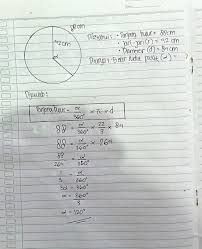 88cm
42cm
Diketahui : • Panjang busur = 88cm
• Jari-jari (r) = 42 cm
• Diameter (d) = 84 cm
Ditanya : Besar sudut pusat (α) =
Dijawab :
Panjang busur = α/360° × π × d
88 = α/360° × 22/7 × 84
88 = α/360° × 264
88/264 = α/360°
1/3 = α/360°
3α = 360°
α = 360°/3
α = 120°